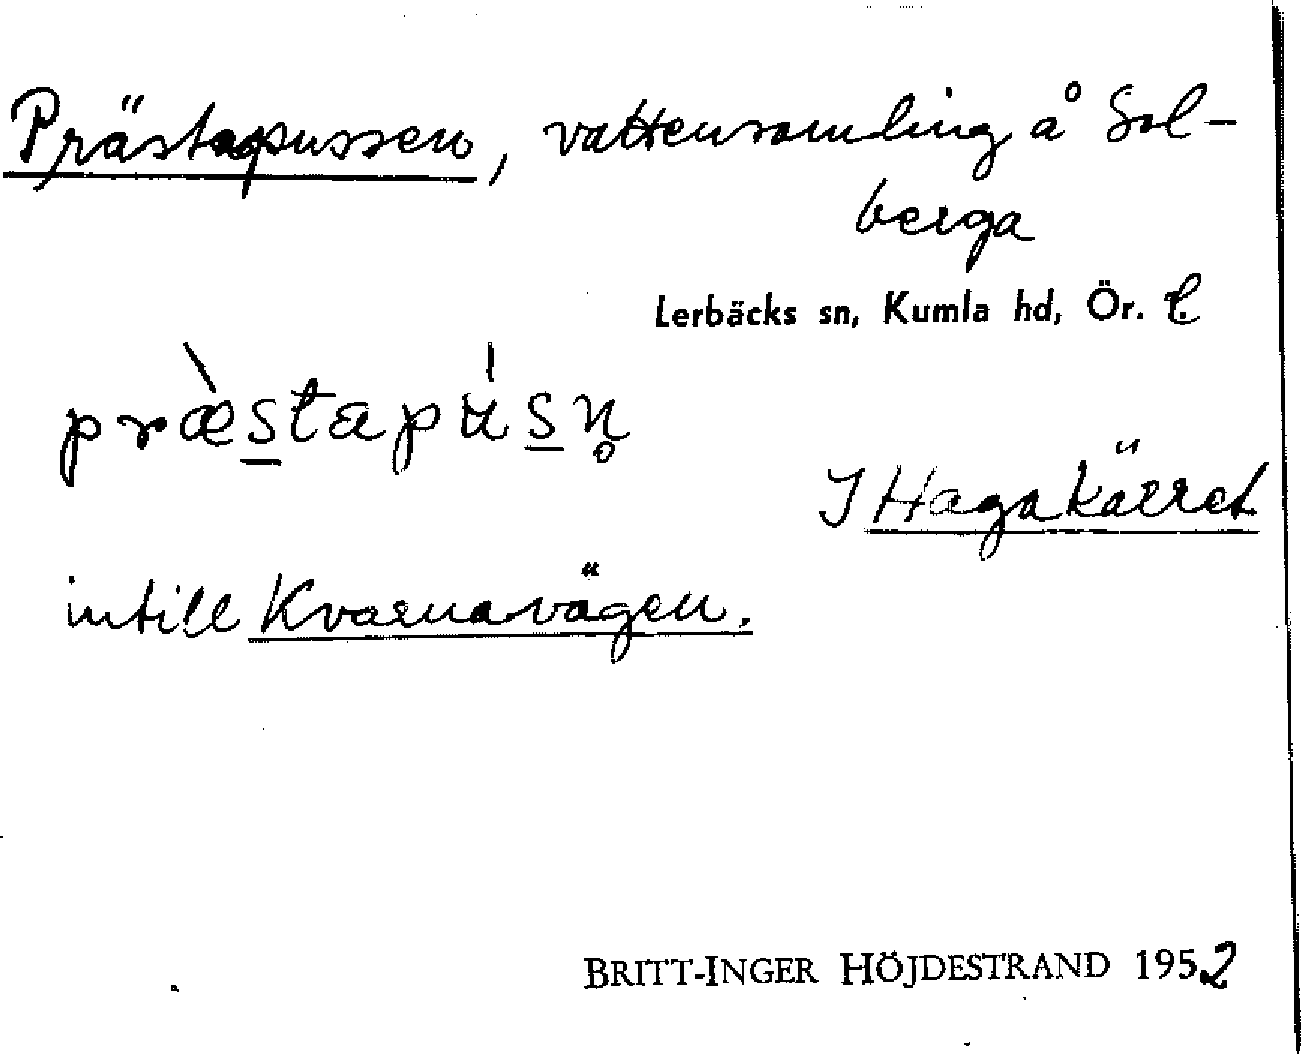 Prästapussen, vattensamling å Sol-
berga
Lerbäcks sn, Kumla hd, Ör. l.
præ̀s̲tapú̵s̲n̥
I Hagakärret
intill Kvarnavägen.
BRITT-INGER HÖJDESTRAND 1952